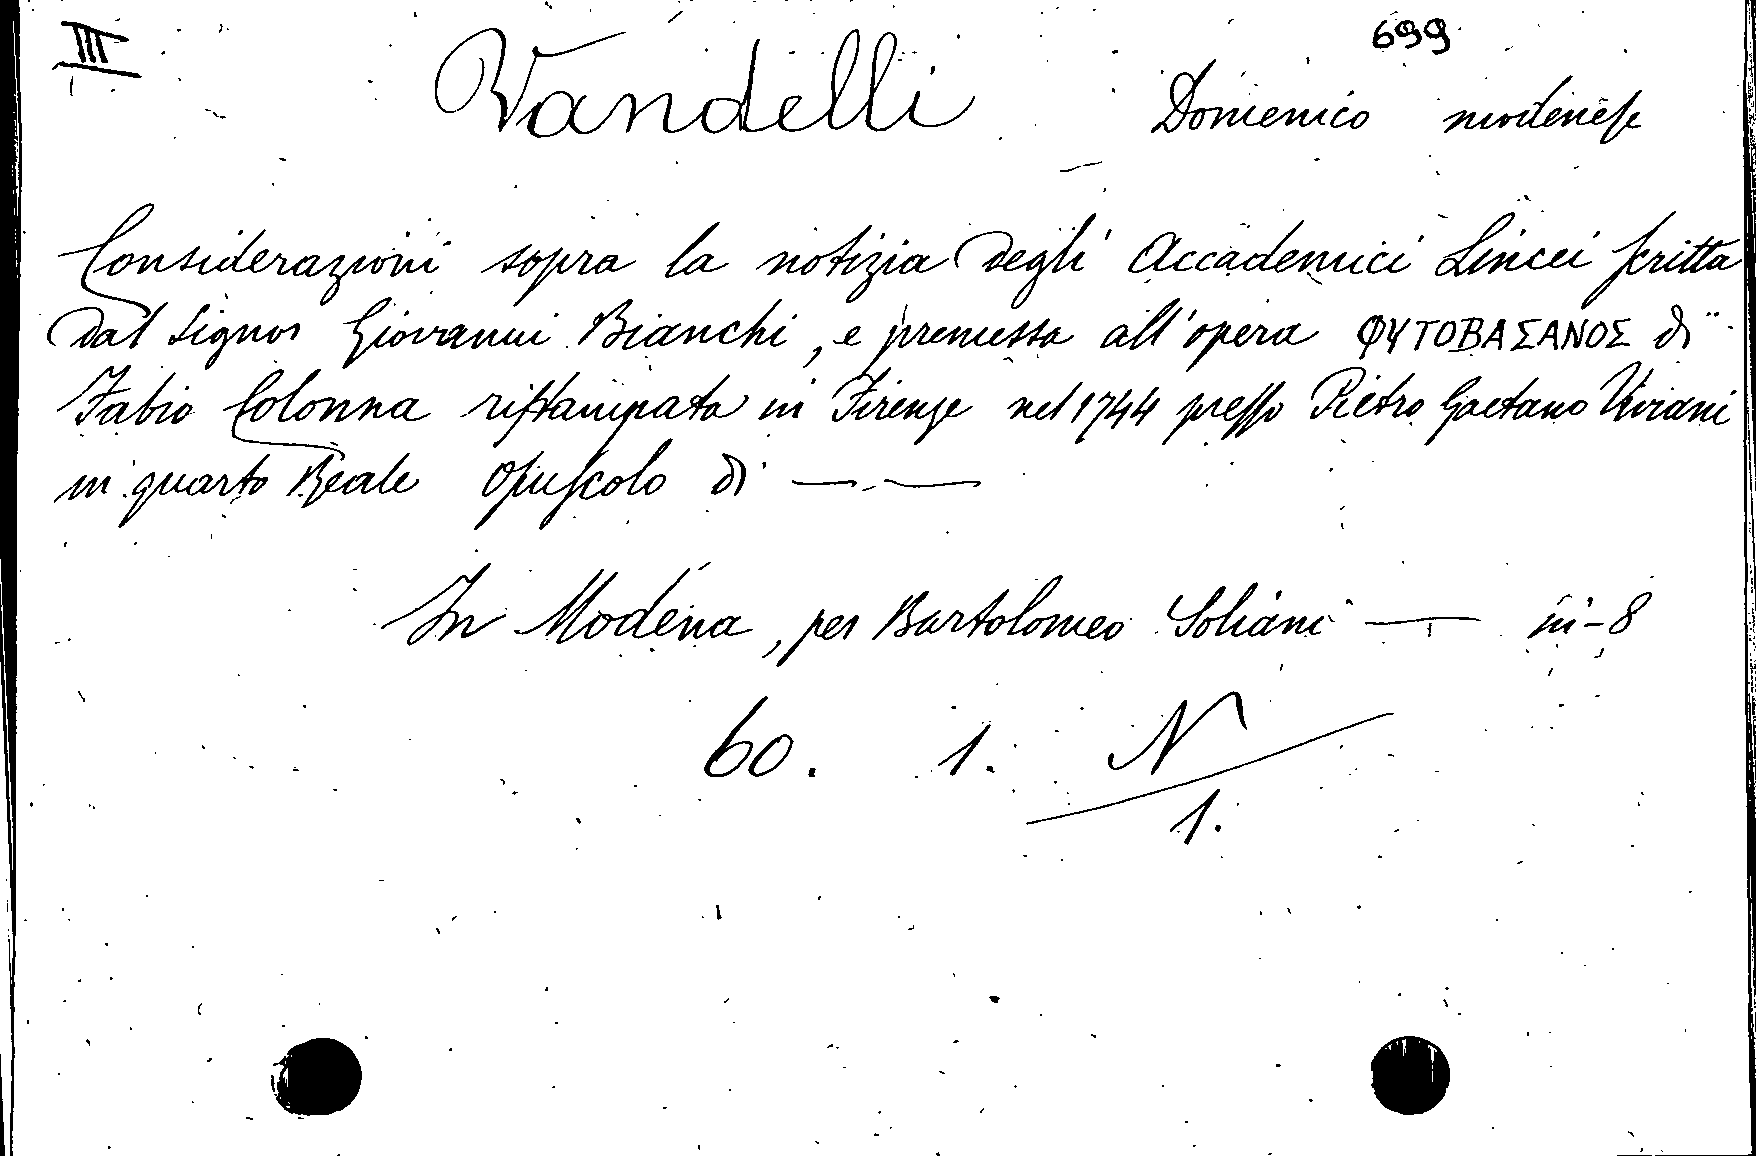 III
699
Vandelli Domenico modenese
Considerazioni sopra la notizia degli Accademici Lincei scritta
dal Signor Giovanni Bianchi, e premessa all'opera ΦΥΤΟΒΑΣΑΝΟΣ di
Fabio Colonna ristampata in Firenze nel 1744 presso Pietro Gaetano Viviani
in quarto Reale Opuscolo di —.—
In Modena, per Bartolomeo Soliani — in-8
60. 1. N
1.